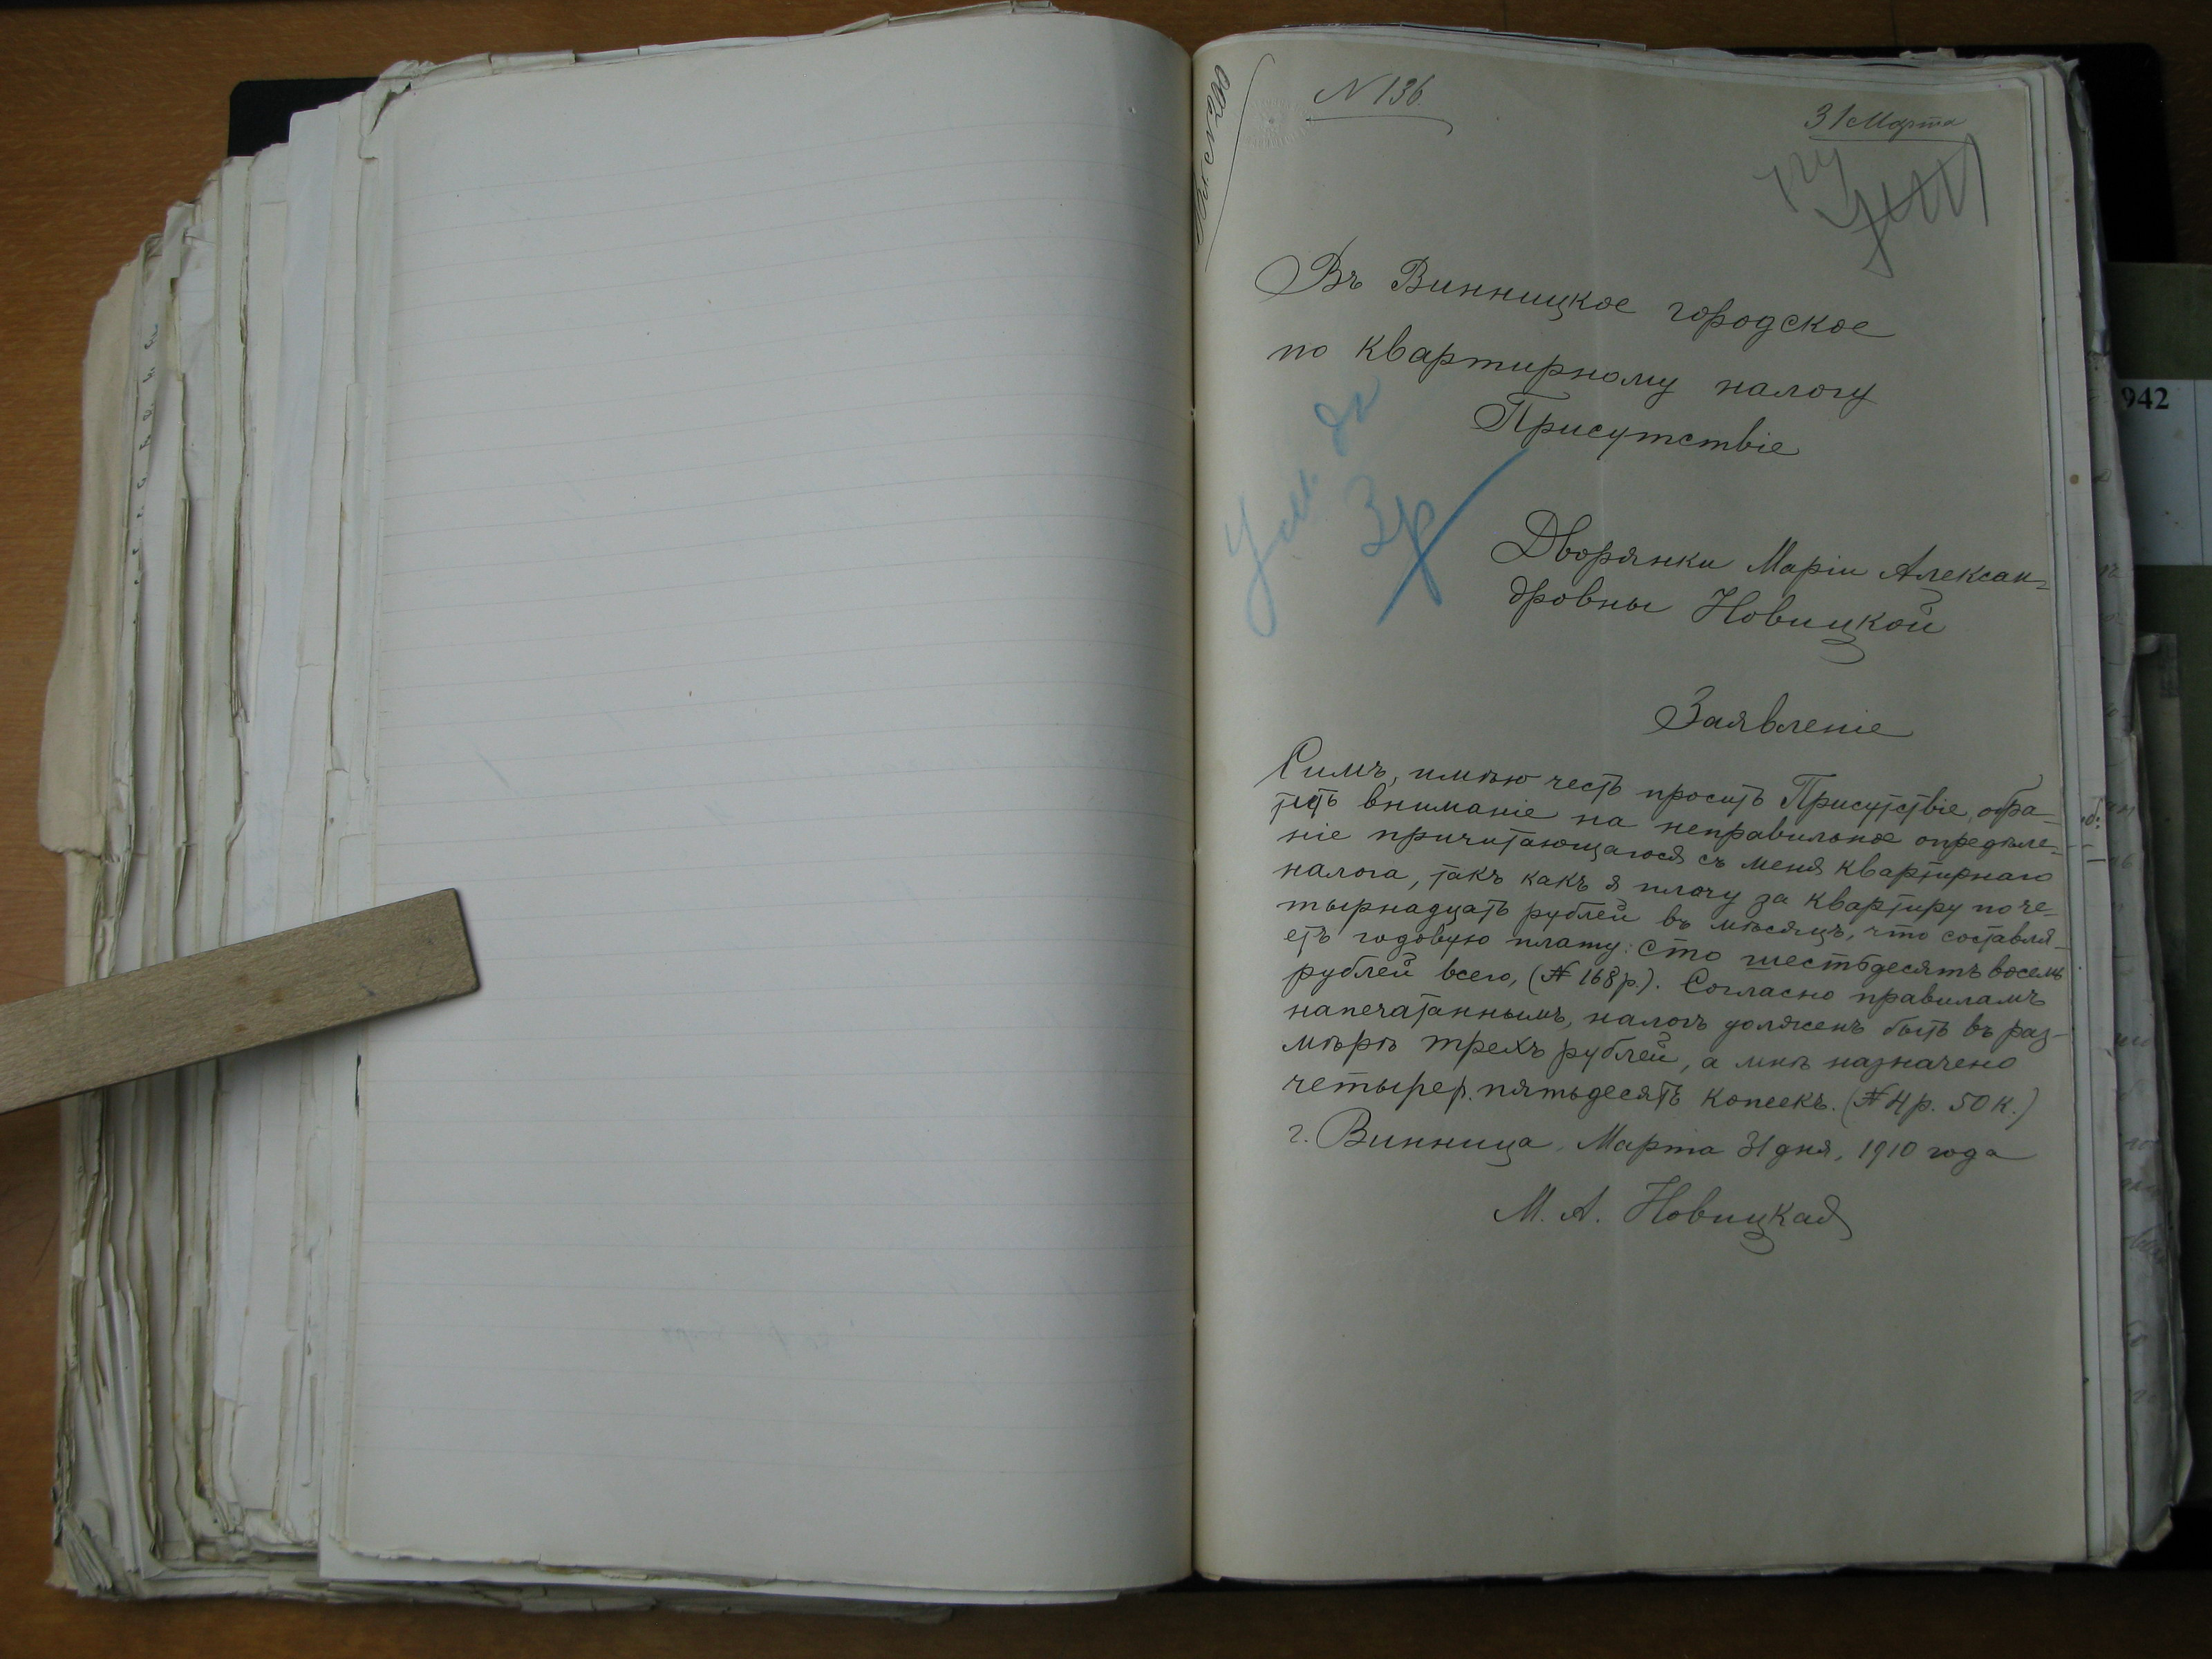 N 136
31 Марта
Въ Винницкое городское
по квартирному налогу
Присутствіе
Ум. до
3р
Дворянки Маріи Алексан-
дровны Новицкой
Заявленіе
Симъ, имѣю честь просить Присутствіе, обра-
тить вниманіе на неправильное опредѣле-
ніе причитающагося съ меня квартирнаго
налога, такъ какъ я плачу за квартиру по че-
тырнадцать рублей въ мѣсяцъ, что составля-
етъ годовую плату: сто шестьдесятъ восемь
рублей всего, (№ 168 р.). Согласно правиламъ
напечатаннымъ, налогъ долженъ быть въ раз-
мѣрѣ трехъ рублей, а мнѣ назначено
четыре р. пятьдесятъ копеекъ. (№ 4 р. 50 к.)
г. Винница, Марта 31 дня, 1910 года
М. А. Новицкая
942